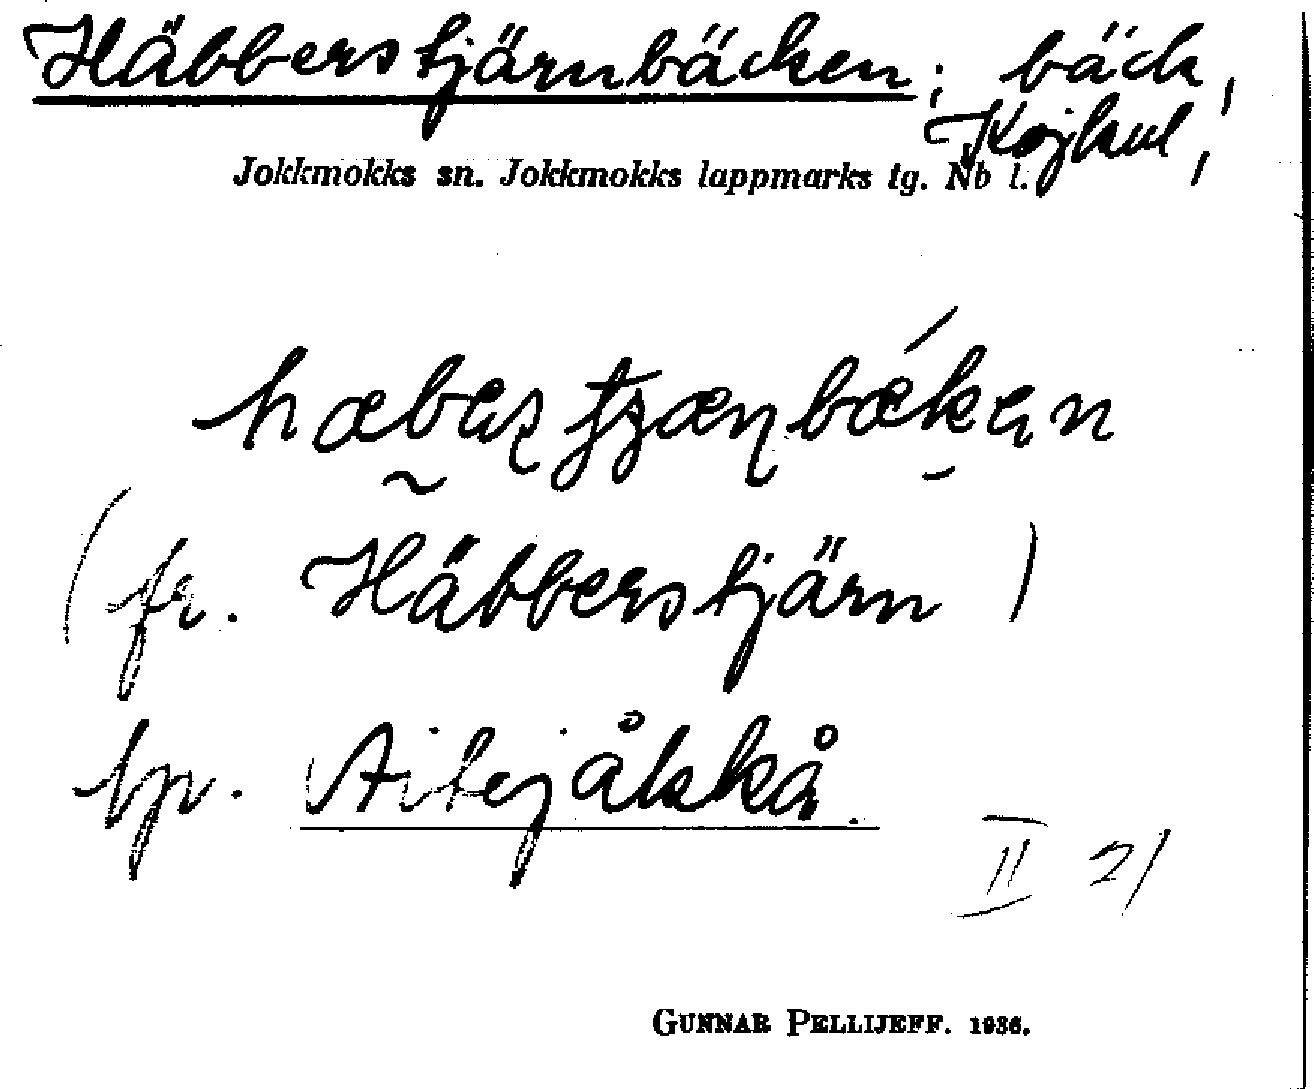 Häbberstjärnbäcken; bäck,
Kojkul,
Jokkmokks sn. Jokkmokks lappmarks tg. Nb l.
(fr. Häbberstjärn)
lp. Aitejåkkå.
II 21
GUNNAR PELLIJEFF. 1936.